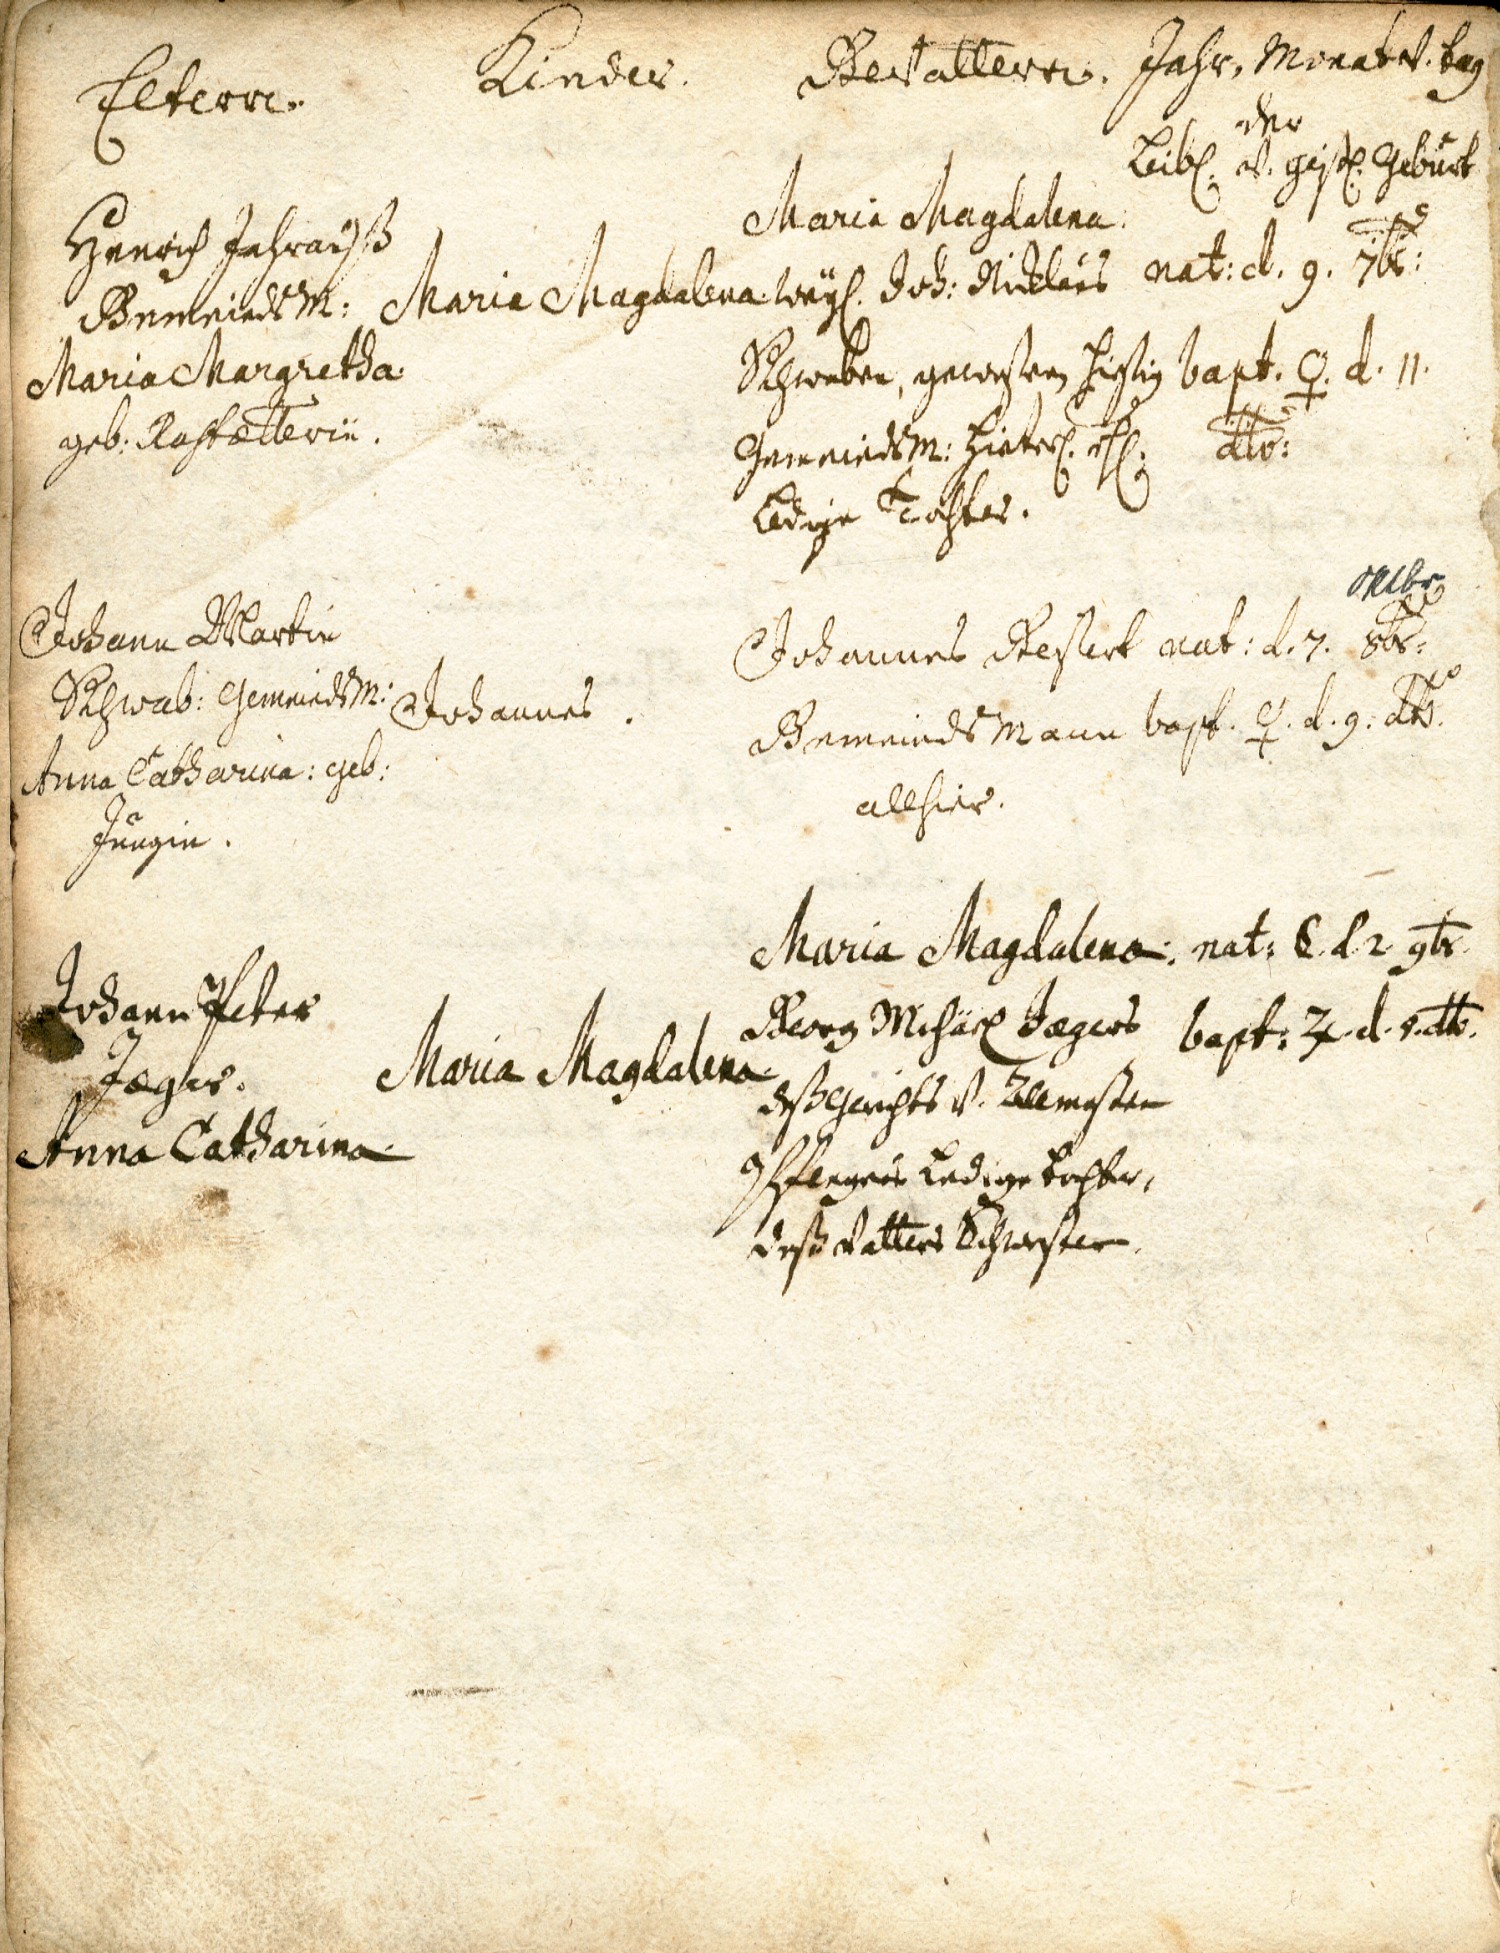 Eltern.
Kinder.
Gevattern.
Jahr, Monat v. tag
der
Leibl. v. geistl. Geburt
Henrich Jahrauß
Gemeindsm:
Maria Margretha
geb: Rastætterin.
Maria Magdalena
Maria Magdalena
weyl. Joh: Nicklaus
Schwaben, gewesten hießig
Gemeindsm: hinterl.
Ledige Tochter.
nat: d. 9. 7br:
bapt. ♀. d. 11.
dto:
Johann Martin
Schwab: Gemeindsm:
Anna Catharina: geb:
Jungin.
Johannes.
Johannes Gessert
Gemeindsmann
allhier.
Oktbr
nat: d. 7. 8br:
bapt. ♀. d. 9. dto.
Johann Peter
Jæger.
Anna Catharina
Maria Magdalena
Maria Magdalena:
Georg Michäel Jægers
deß Gerichts v. Allmosen
Pflegers Ledige tochter,
deß Vatters Schwester.
nat: d. 2 9br.
bapt: ♃. d. 5. dto.